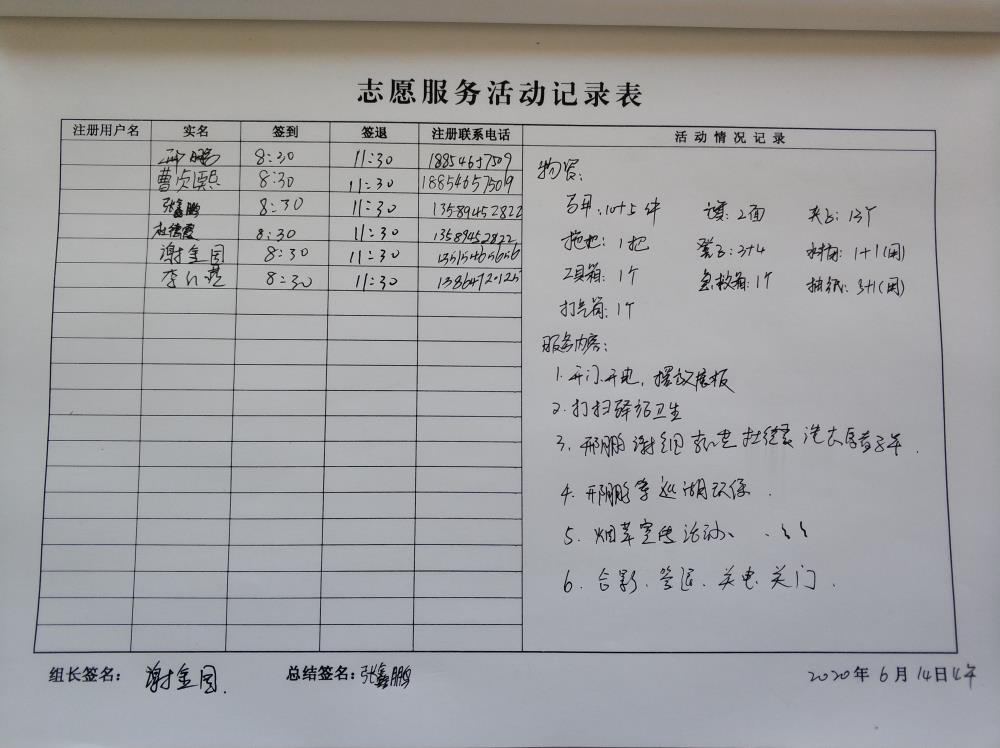 志愿服务活动记录表
注册用户名 实名 签到 签退 注册联系电话 活动情况记录
邢鹏 8:30 11:30 18854657509
曹贞熙 8:30 11:30 18854657509
张鑫鹏 8:30 11:30 13589452822
杜德霞 8:30 11:30 13589452822
谢金国 8:30 11:30
李 8:30 11:30
物资:
马甲:10+5件 2面 夹子:13个
拖把:1把 凳子:3+4 水桶:1+1(困)
工具箱:1个 急救箱:1个 抽纸:3+1(困)
打气筒:1个
服务内容:
1.开门.开电,摆放展板
2.打扫驿站卫生
3.邢鹏 谢 杜德霞
4.邢鹏等巡湖环保.
5.烟草宣传活动、
6.合影.签退、关电.关门.
组长签名: 谢金国. 总结签名: 张鑫鹏
2020年6月14日上午